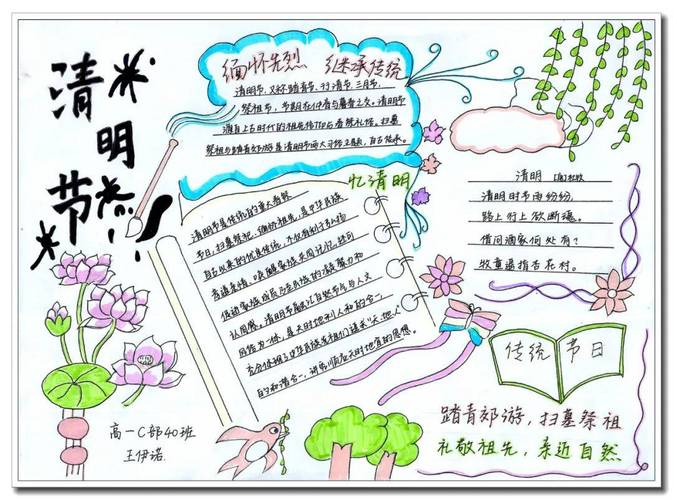 清明节
缅怀先烈 继承传统
清明节,又称踏青节、行清节、三月节、
祭祖节,节期在仲春与暮春之交。清明节
源自上古时代的祖先信仰与春祭礼俗。扫墓
祭祖与踏青郊游是清明节两大习俗主题,自古传承。
忆清明
清明节是传统的重大春祭
节日,扫墓祭祀、缅怀祖先,是中华民族
自古以来的优良传统,不仅有利于弘扬
孝道亲情、唤醒家族共同记忆,还可
促进家族成员乃至民族的凝聚力和
认同感。清明节融汇自然节气与人文
风俗为一体,是天时地利人和的合一,
充分体现了中华民族先祖们追求“天、地、人”
的和谐合一,讲究顺应天时地宜的思想。
清明 [唐]杜牧
清明时节雨纷纷,
路上行人欲断魂。
借问酒家何处有?
牧童遥指杏花村。
传统 节日
踏青郊游,扫墓祭祖
礼敬祖先,亲近自然
高一C部40班
王伊诺